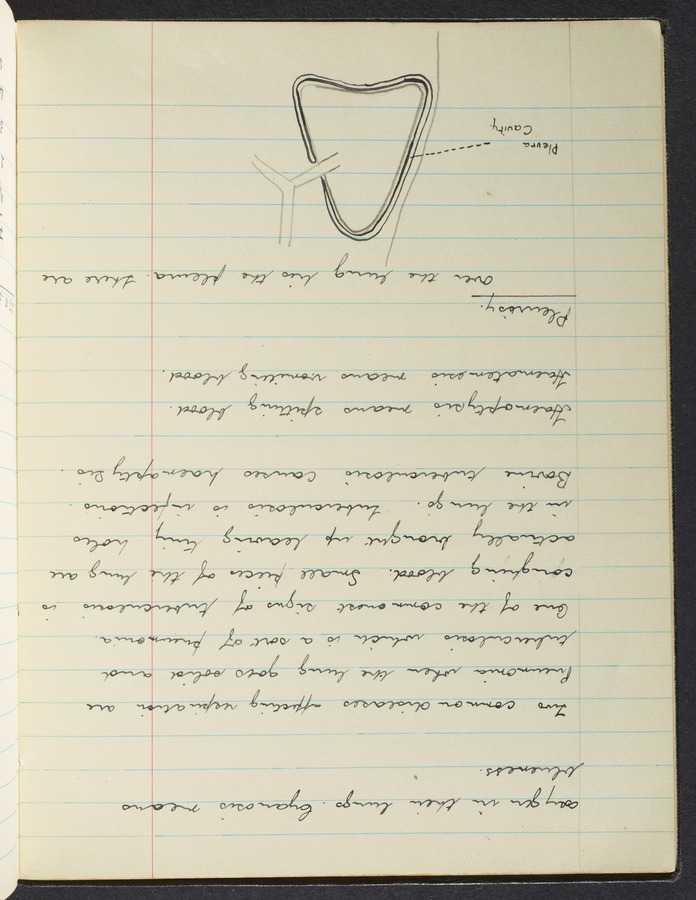 oxygen in their lungs. Cyanosis means
blueness.
Two common diseases affecting respiration are
Pneumonia when the lung goes solid and
tuberculosis which is a sort of pneumonia.
One of the commonest signs of tuberculosis is
coughing blood. Small pieces of the lung are
actually brought up leaving tiny holes
in the lungs. Tuberculosis is infectious.
Bovine tuberculosis causes haemaptysis.
Haemoptysis means spitting blood.
Haematemesis means vomiting blood.
Pleurisy.
Over the lung lies the pleura. There are
Pleura
Cavity.